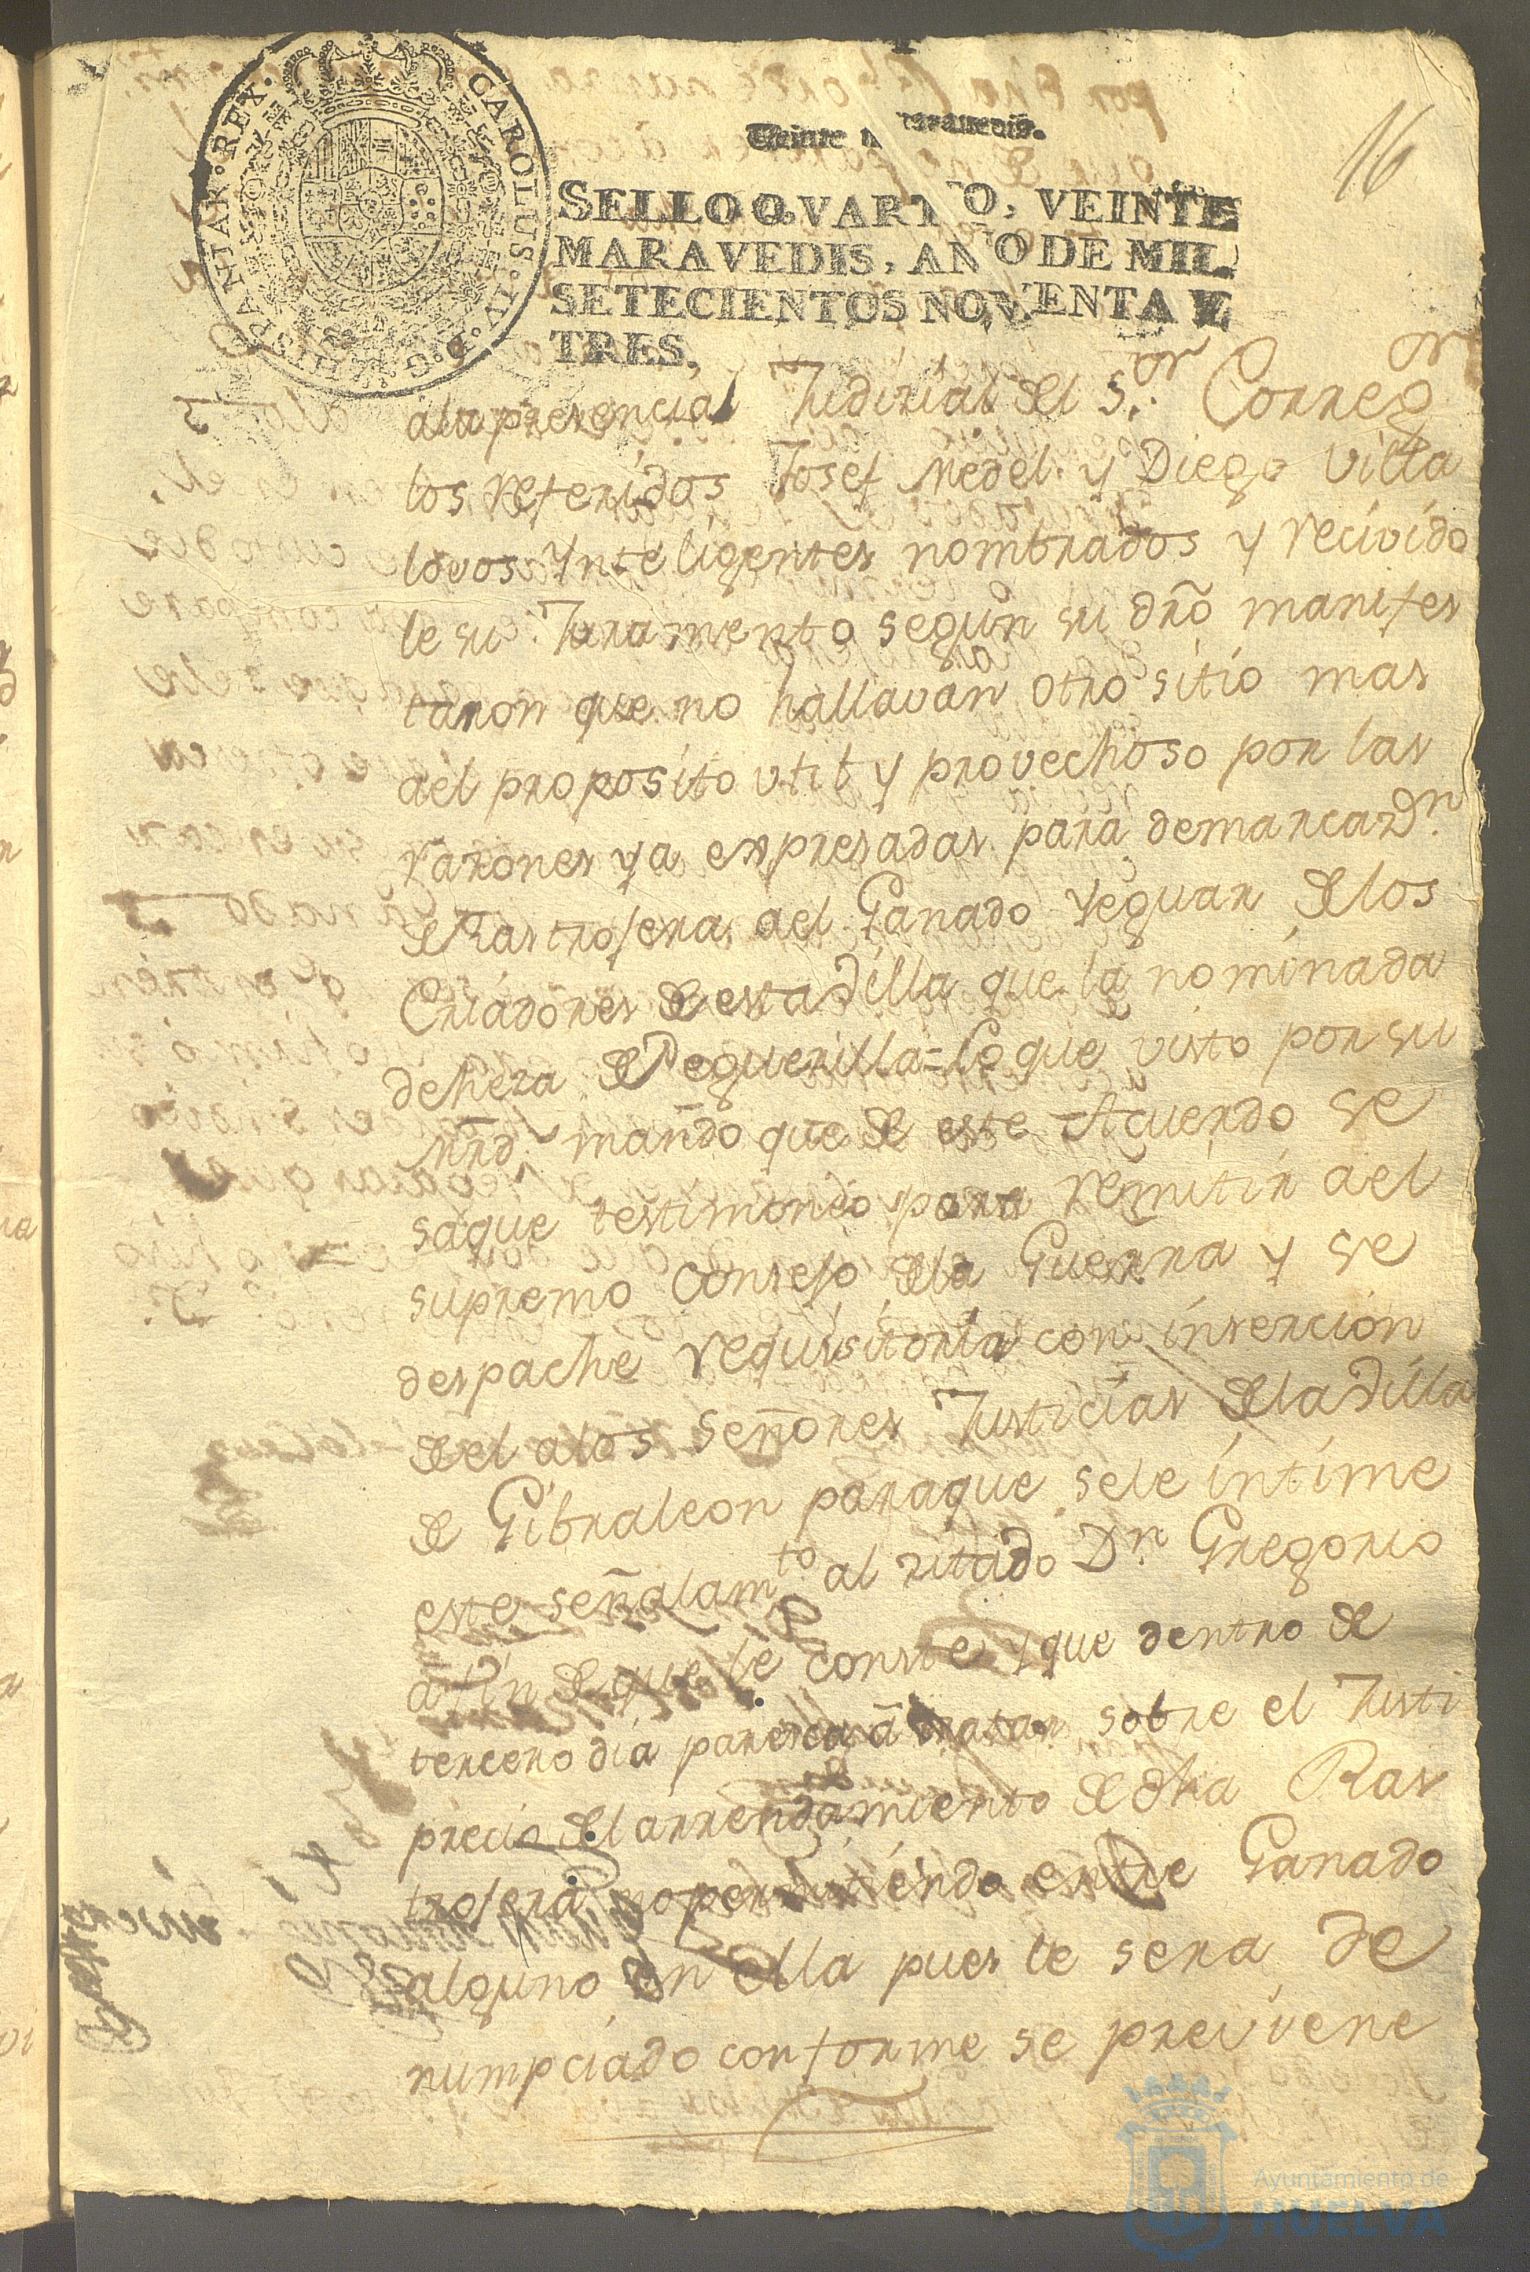 16
CAROLUS · IV · D · G · HISPANIAR · REX ·
Veinte maravedis.
SELLO QVARTO, VEINTE
MARAVEDIS, AÑO DE MIL
SETECIENTOS NOVENTA Y
TRES.
ala presencial Judizial del S.or Correg.or
los referidos Josef Medel y Diego Villa
lovos Ynteligentes nombrados y recivido
le su Juramento segun su dr̃o manifes
taron que no hallavan otro sitio mas
ael proposito vtil y provechoso por las
razones ya expresadas para demarcaz.on
de Rastrojera ael Ganado Yeguar delos
Criadores de esta Villa que la nominada
deheza de Peguerilla = Lo que visto por su
Mrd. mando que de este Acuerdo se
saque testimonio para remitir ael
supremo Consejo dela Guerra y se
despache requisitoria con insercion
del alos señores Justicias dela Villa
de Gibraleon paraque sele intime
este señalam.to al zitado D.n Gregorio
a fin de que le conste y que dentro de
tercero dia paresca a tratar sobre el Justi
precio del arrendamiento de dha Ras
trojera no permitiendo entre Ganado
alguno en ella pues le sera de
numpciado conforme se previene
Ayuntamiento de
HUELVA